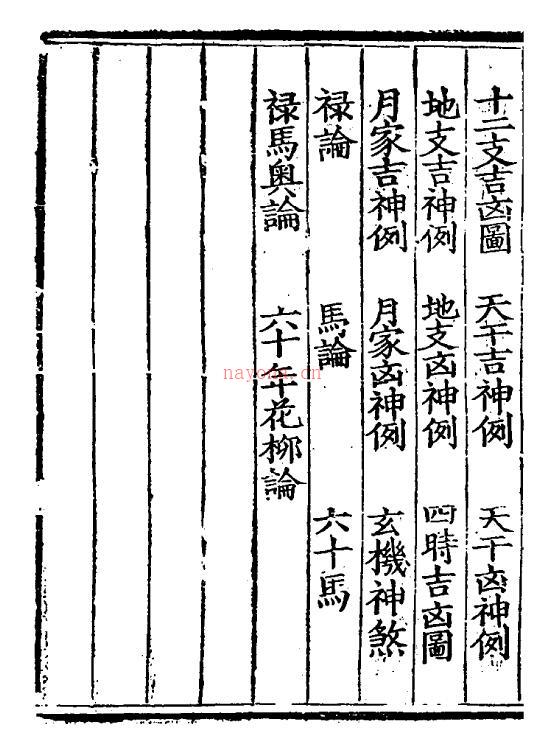 十二支吉凶圖　天干吉神例　天干凶神例
地支吉神例　地支凶神例　四時吉凶圖
月家吉神例　月家凶神例　玄機神煞
禄論　馬論　六十馬
禄馬奥論　六十年花柳論
nayona.cn